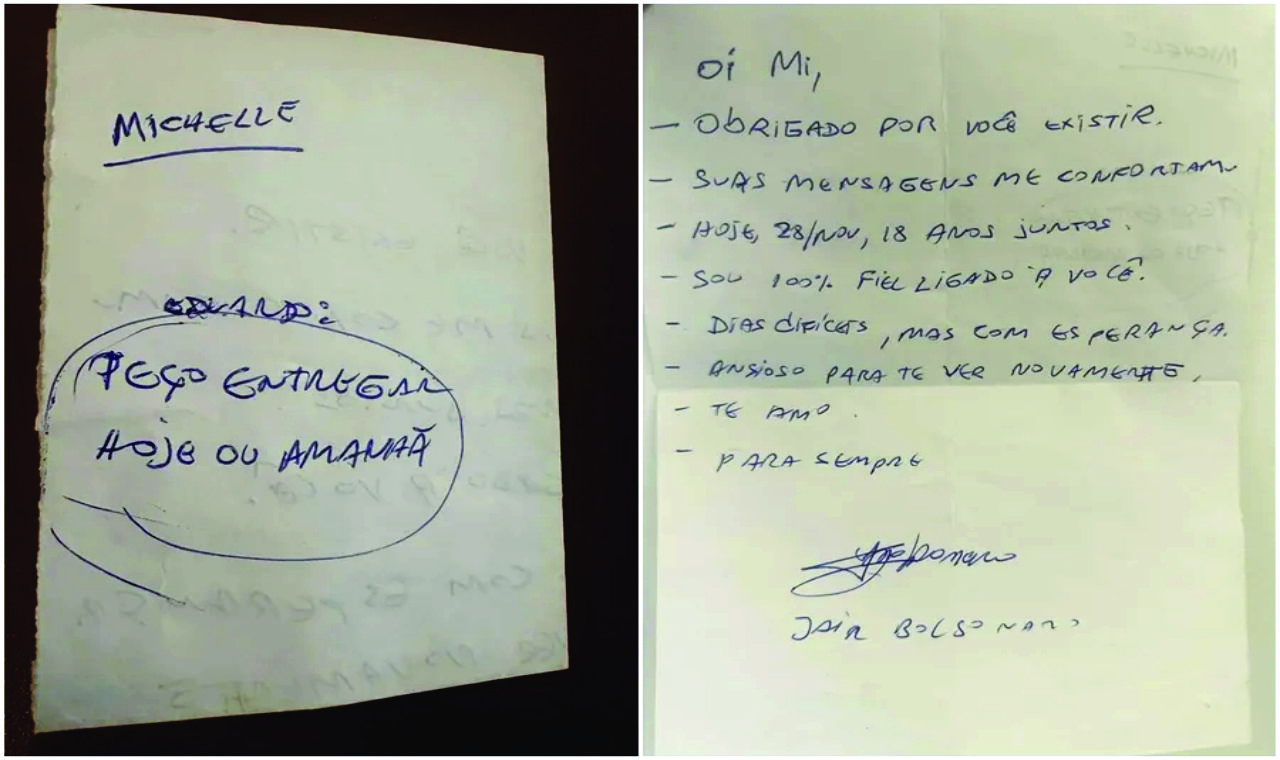 MICHELLE
EDUARDO:
PEÇO ENTREGAR
HOJE OU AMANHÃ
Oi Mi,
- OBRIGADO POR VOCÊ EXISTIR.
- SUAS MENSAGENS ME CONFORTAM.
- HOJE, 28/NOV, 18 ANOS JUNTOS.
- SOU 100% FIEL LIGADO A VOCÊ.
- DIAS DIFÍCEIS, MAS COM ESPERANÇA.
- ANSIOSO PARA TE VER NOVAMENTE,
- TE AMO.
- PARA SEMPRE
JAIR BOLSONARO